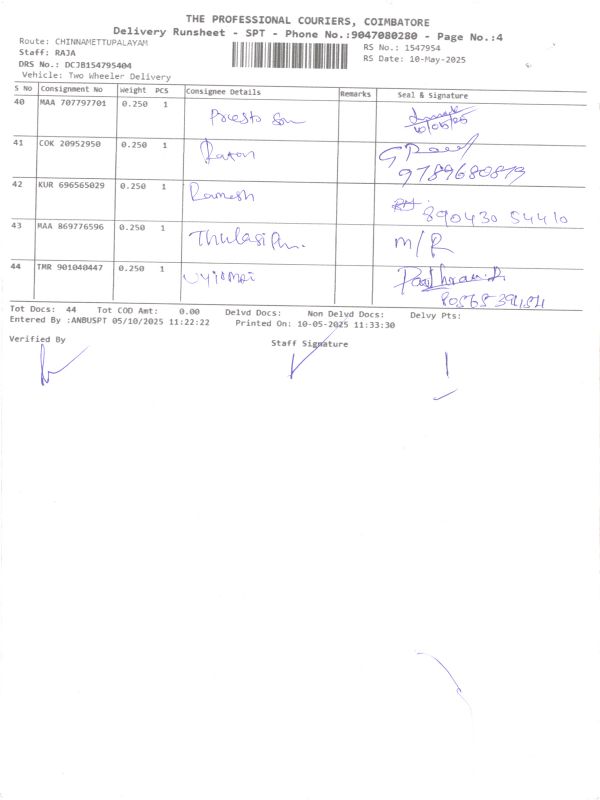 THE PROFESSIONAL COURIERS, COIMBATORE
Delivery Runsheet - SPT - Phone No.:9047080280 - Page No.:4
Route: CHINNAMETTUPALAYAM
Staff: RAJA
DRS No.: DCJB154795404
Vehicle: Two Wheeler Delivery
RS No.: 1547954
RS Date: 10-May-2025
S No Consignment No Weight PCS Consignee Details Remarks Seal & Signature
40 MAA 707797701 0.250 1 Presto Son 10/05/25
41 COK 20952950 0.250 1 Ratan 9789680879
42 KUR 696565029 0.250 1 Ramesh 89043054410
43 MAA 869776596 0.250 1 Thulasi M/R
44 TMR 901040447 0.250 1
Tot Docs: 44 Tot COD Amt: 0.00 Delvd Docs: Non Delvd Docs: Delvy Pts:
Entered By :ANBUSPT 05/10/2025 11:22:22 Printed On: 10-05-2025 11:33:30
Verified By Staff Signature